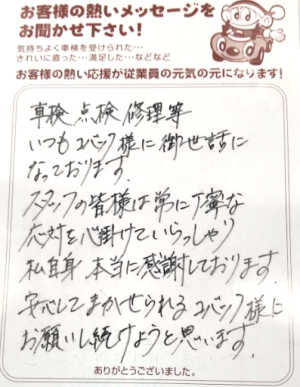 お客様の熱いメッセージを
お聞かせ下さい!
気持ちよく車検を受けられた…
きれいに直った…満足した…などなど
お客様の熱い応援が従業員の元気の元になります!
車検 点検 修理等
いつもコバック様に御世話に
なっております。
スタッフの皆様は常に丁寧な
応対を心掛けていらっしゃり
私自身、本当に感謝しております。
安心してまかせられるコバック様に
お願いし続けようと思います。
ありがとうございました。